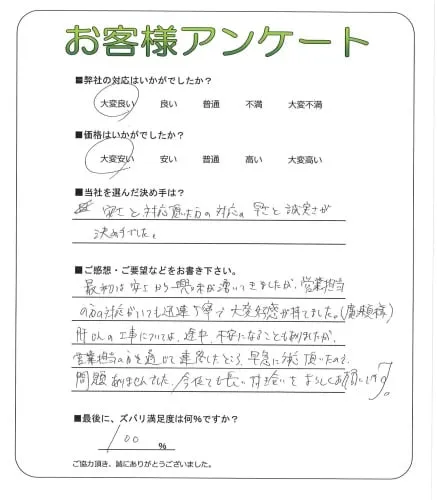 お客様アンケート
■弊社の対応はいかがでしたか?
大変良い 良い 普通 不満 大変不満
■価格はいかがでしたか?
大変安い 安い 普通 高い 大変高い
■当社を選んだ決め手は?
安さと対応頂いた方の対応の早さと誠実さが
決め手でした。
■ご感想・ご要望などをお書き下さい。
最初は安さから興味が湧いてきましたが、営業担当
の方の対応がいつも迅速丁寧で大変好感が持てました。(廣瀬様)
肝心の工事については、途中、不安になることもありましたが、
営業担当の方を通じて連絡したところ、早急に対応頂いたので、
問題ありませんでした。今後とも長い付き合いをよろしくお願いします。
■最後に、ズバリ満足度は何%ですか?
100 %
ご協力頂き、誠にありがとうございました。